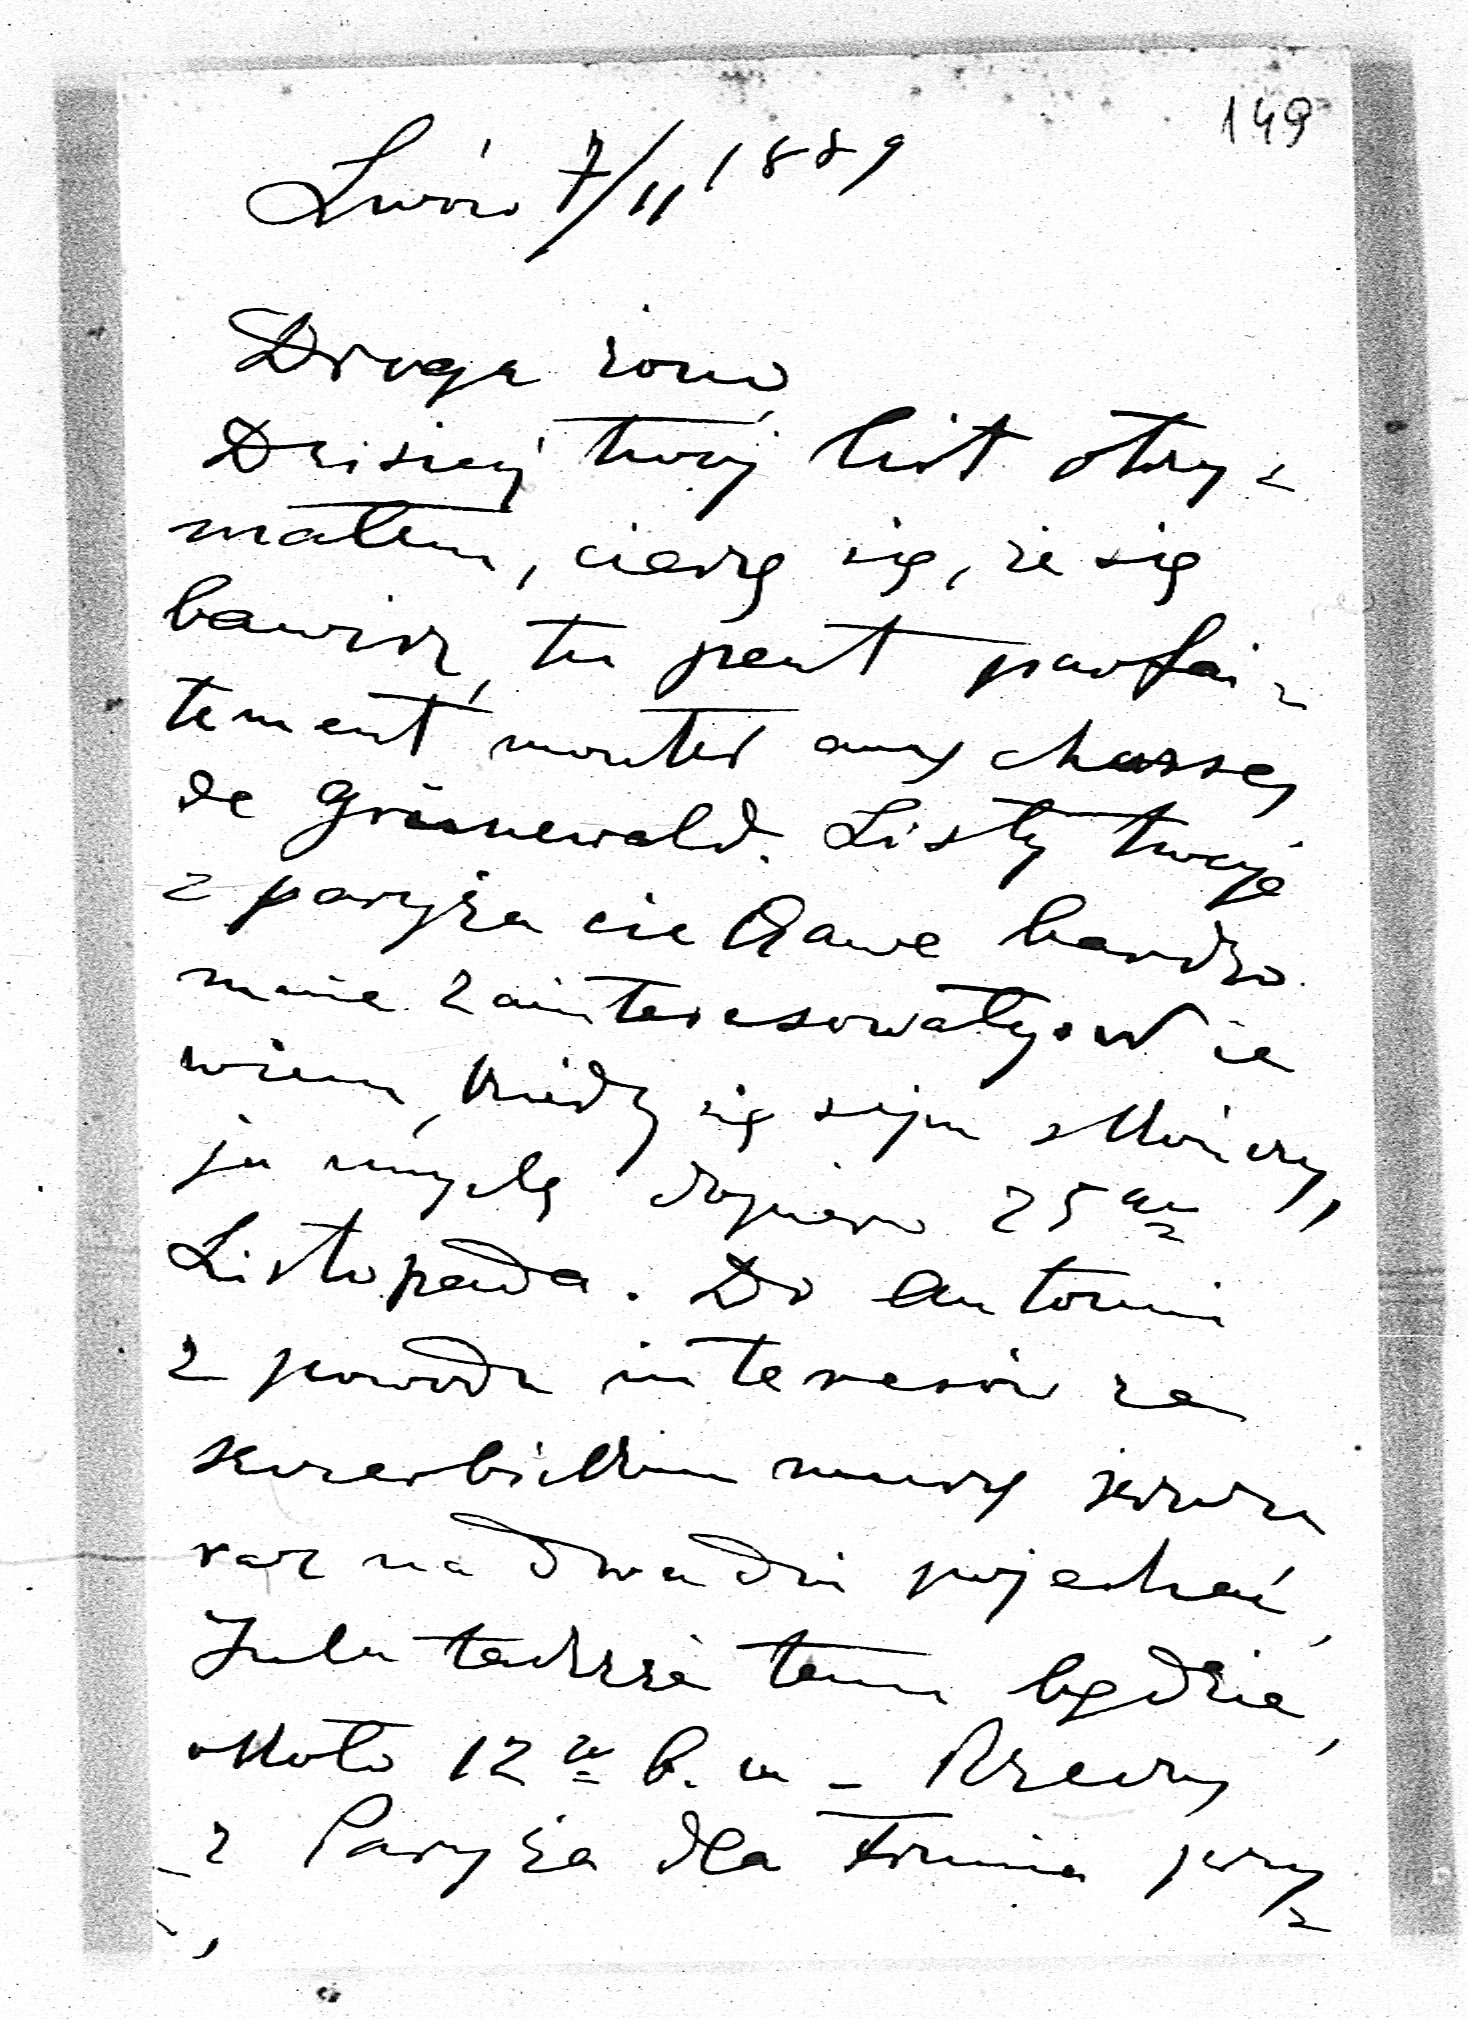 149
Lwów 7/11 1889
Droga żono
Dzisiej twój list otrzy-
małem, cieszę się, że się
bawisz, tu peut parfai-
tement monter aux chasses
de Grünewald. Listy twoje
z paryża ciekawe bardzo
mnie zainteresowały. Nie
wiem, kiedy się sejm skończy,
ja myślę dopiero 25
Listopada. Do Antonin
z powodu interesów ze
skrzerbickim muszę przed
raz na dwa dni pojechać,
Jula także tam będzie,
około 12 b. m – Rzeczy
z Paryża dla przy-